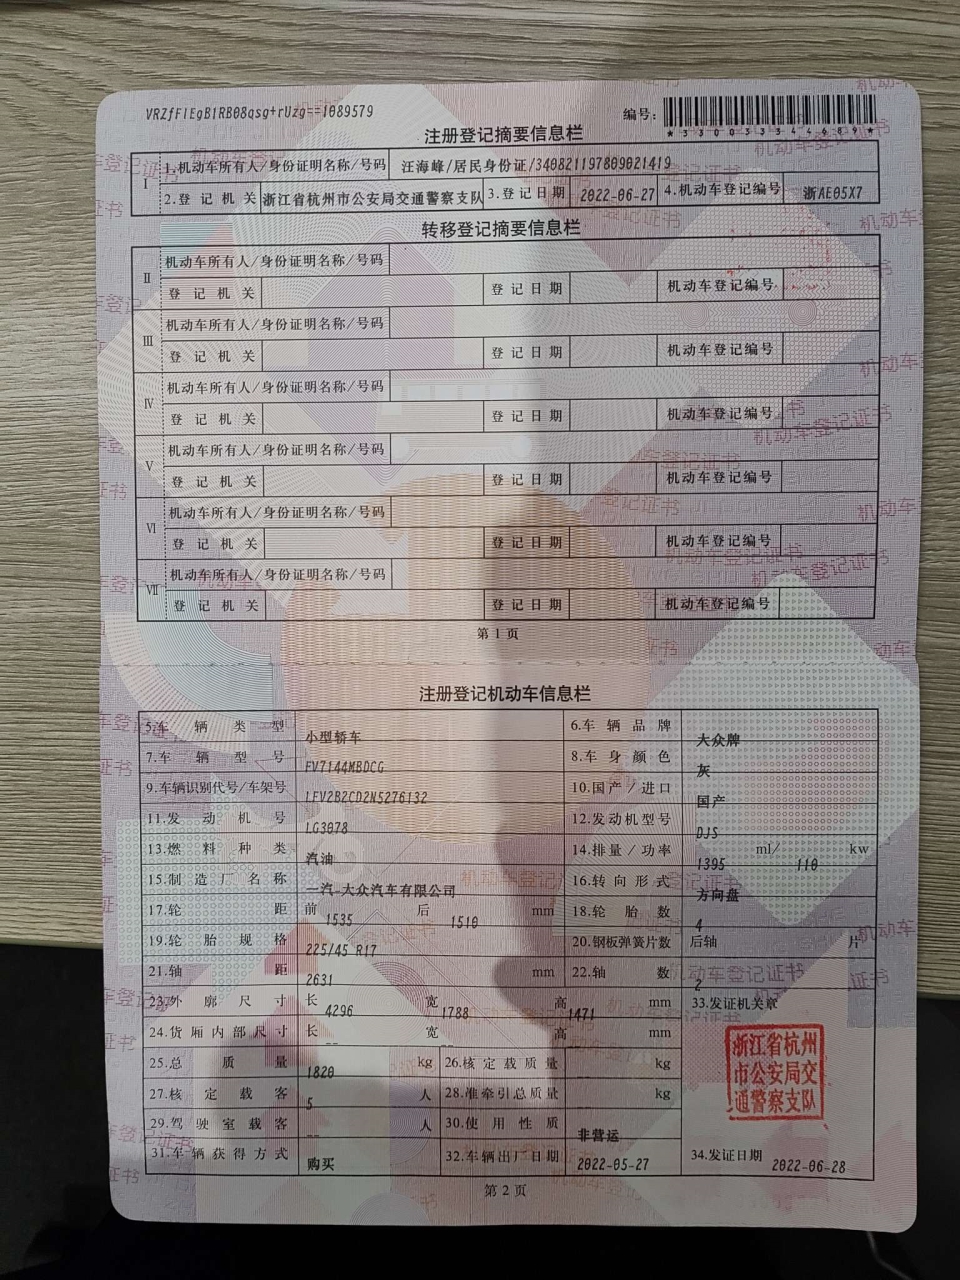 VRZfFlEgB1RB08qsg+rUzg==1089579
编号:
*330033344689*
注册登记摘要信息栏
Ⅰ 1.机动车所有人/身份证明名称/号码 汪海峰/居民身份证/340821197809021419
2.登记机关 浙江省杭州市公安局交通警察支队 3.登记日期 2022-06-27 4.机动车登记编号 浙AE05X7
转移登记摘要信息栏
Ⅱ 机动车所有人/身份证明名称/号码
登记机关 登记日期 机动车登记编号
Ⅲ 机动车所有人/身份证明名称/号码
登记机关 登记日期 机动车登记编号
Ⅳ 机动车所有人/身份证明名称/号码
登记机关 登记日期 机动车登记编号
Ⅴ 机动车所有人/身份证明名称/号码
登记机关 登记日期 机动车登记编号
Ⅵ 机动车所有人/身份证明名称/号码
登记机关 登记日期 机动车登记编号
Ⅶ 机动车所有人/身份证明名称/号码
登记机关 登记日期 机动车登记编号
第1页
注册登记机动车信息栏
5.车辆类型 小型轿车 6.车辆品牌 大众牌
7.车辆型号 FV7144MBDCG 8.车身颜色 灰
9.车辆识别代号/车架号 LFV2B2CD2N5276132 10.国产/进口 国产
11.发动机号 LG3078 12.发动机型号 DJS
13.燃料种类 汽油 14.排量/功率 1395 ml/ 110 kw
15.制造厂名称 一汽-大众汽车有限公司 16.转向形式 方向盘
17.轮距 前 1535 后 1510 mm 18.轮胎数 4
19.轮胎规格 225/45 R17 20.钢板弹簧片数 后轴 片
21.轴距 2631 mm 22.轴数 2
23.外廓尺寸 长 4296 宽 1788 高 1471 mm 33.发证机关章
24.货厢内部尺寸 长 -- 宽 -- 高 -- mm
浙江省杭州
市公安局交
通警察支队
25.总质量 1820 kg 26.核定载质量 -- kg
27.核定载客 5 人 28.准牵引总质量 -- kg
29.驾驶室载客 -- 人 30.使用性质 非营运
31.车辆获得方式 购买 32.车辆出厂日期 2022-05-27 34.发证日期 2022-06-28
第2页